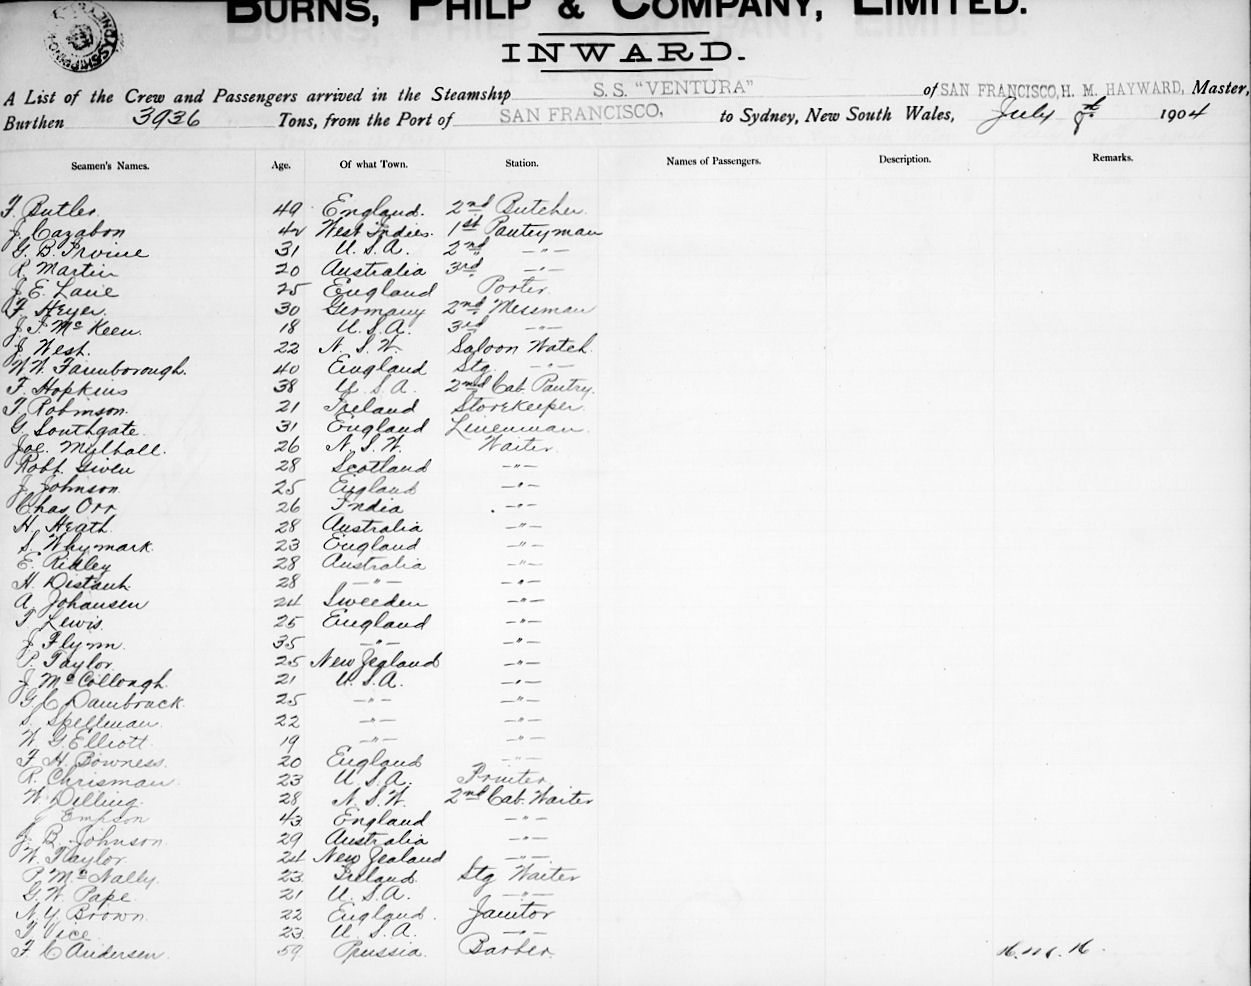 BURNS, PHILP & COMPANY, LIMITED.
INWARD.
A List of the Crew and Passengers arrived in the Steamship S. S. "VENTURA" of SAN FRANCISCO, H. M. HAYWARD, Master,
Burthen 3936 Tons, from the Port of SAN FRANCISCO, to Sydney, New South Wales, July 1904
Seamen's Names. Age. Of what Town. Station. Names of Passengers. Description. Remarks.
F. Butler. 49 England. 2nd Butcher.
J. Cazabon 42 West Indies. 1st Pantryman
G. B. Irvine 31 U. S. A. 2nd -"-
R. Martin 20 Australia 3rd -"-
J. E. Lane 25 England Porter.
F. Heyer. 30 Germany 2nd Messman
J. F. McKeen. 18 U. S. A. 3rd -"-
J. West. 22 N. S. W. Saloon Watch.
W. W. Farnborough. 40 England Stg. -"-
F. Hopkins 38 U. S. A. 2nd Cab. Pantry.
T. Robinson. 21 Ireland Storekeeper.
G. Southgate. 31 England Linenman.
Joe. Mulhall. 26 N. S. W. Waiter.
Robt. Given 28 Scotland -"-
J. Johnson. 25 England -"-
Chas Orr 26 India -"-
H. Heath 28 Australia -"-
S. Whymark. 23 England -"-
E. Ridley 28 Australia -"-
H. 28 -"- -"-
A. Johansen 24 Sweeden -"-
T. Lewis. 25 England -"-
J. Flynn. 35 -"- -"-
P. Taylor. 25 New Zealand -"-
J. McCollough. 21 U. S. A. -"-
G. C. Dambrack. 25 -"- -"-
S. Spellman. 22 -"- -"-
W. G. Elliott. 19 -"- -"-
F. H. Bowness. 20 England -"-
R. Chrisman. 23 U. S. A. Printer.
W. Dilling. 28 N. S. W. 2nd Cab. Waiter
J. Empson 43 England -"-
J. B. Johnson. 29 Australia -"-
W. Taylor. 24 New Zealand -"-
P. McNally. 23 Ireland. Stg Waiter
G. W. Pape. 21 U. S. A. -"-
N. Y. Brown. 22 England. Janitor
T. Vice. 23 U. S. A. -"-
F. C. Andersen. 59 Russia. Barber.